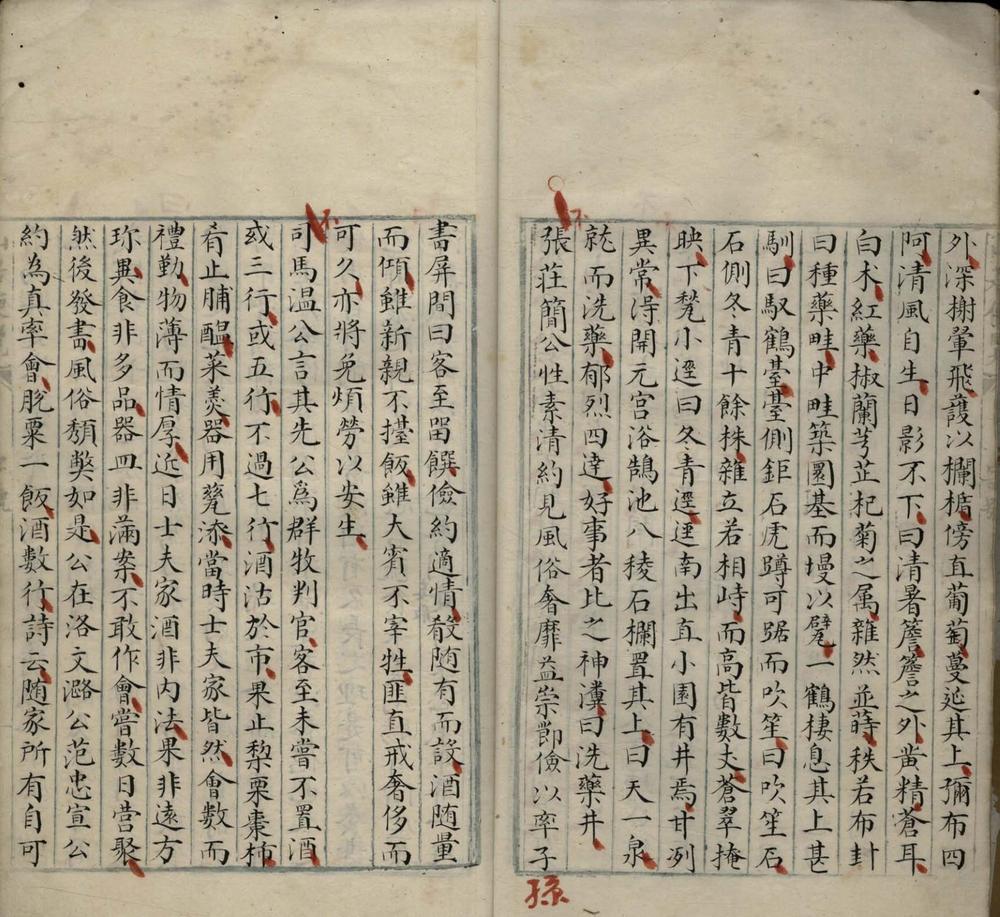 外深榭翬飛護以欄楯傍直葡萄蔓延其上彌布四
阿清風自生日影不下曰清暑簷簷之外黄精蒼耳
白朮紅藥椒蘭芎芷杞菊之属雜然並蒔秩若布卦
曰種藥畦中畦築圜基而墁以甓一鶴棲息其上甚
馴曰馭鶴臺臺側鉅石虎蹲可踞而吹笙曰吹笙石
石側冬青十餘株雜立若相峙而高皆數丈蒼翠掩
映下甃小逕曰冬青逕逕南出直小園有井焉甘冽
異常淂開元宫浴鵠池八稜石欄置其上曰天一泉
就而洗藥郁烈四達好事者比之神瀵曰洗藥井
張莊簡公性素清約見風俗奢靡益崇節儉以率子
不
孫
書屏間曰客至畱饌儉約適情殽随有而設酒随量
而傾雖新親不擡飯雖大賓不宰牲匪直戒奢侈而
可久亦將免煩勞以安生
司馬温公言其先公爲群牧判官客至未嘗不置酒
不
或三行或五行不過七行酒沽於市果止梨栗棗柿
肴止脯醢菜羮器用甆漆當時士夫家皆然會數而
禮勤物薄而情厚近日士夫家酒非内法果非遠方
珎異食非多品器皿非滿案不敢作會嘗數日营聚
然後發書風俗頽獘如是公在洛文潞公范忠宣公
約為真率會脫粟一飯酒數行詩云随家所有自可